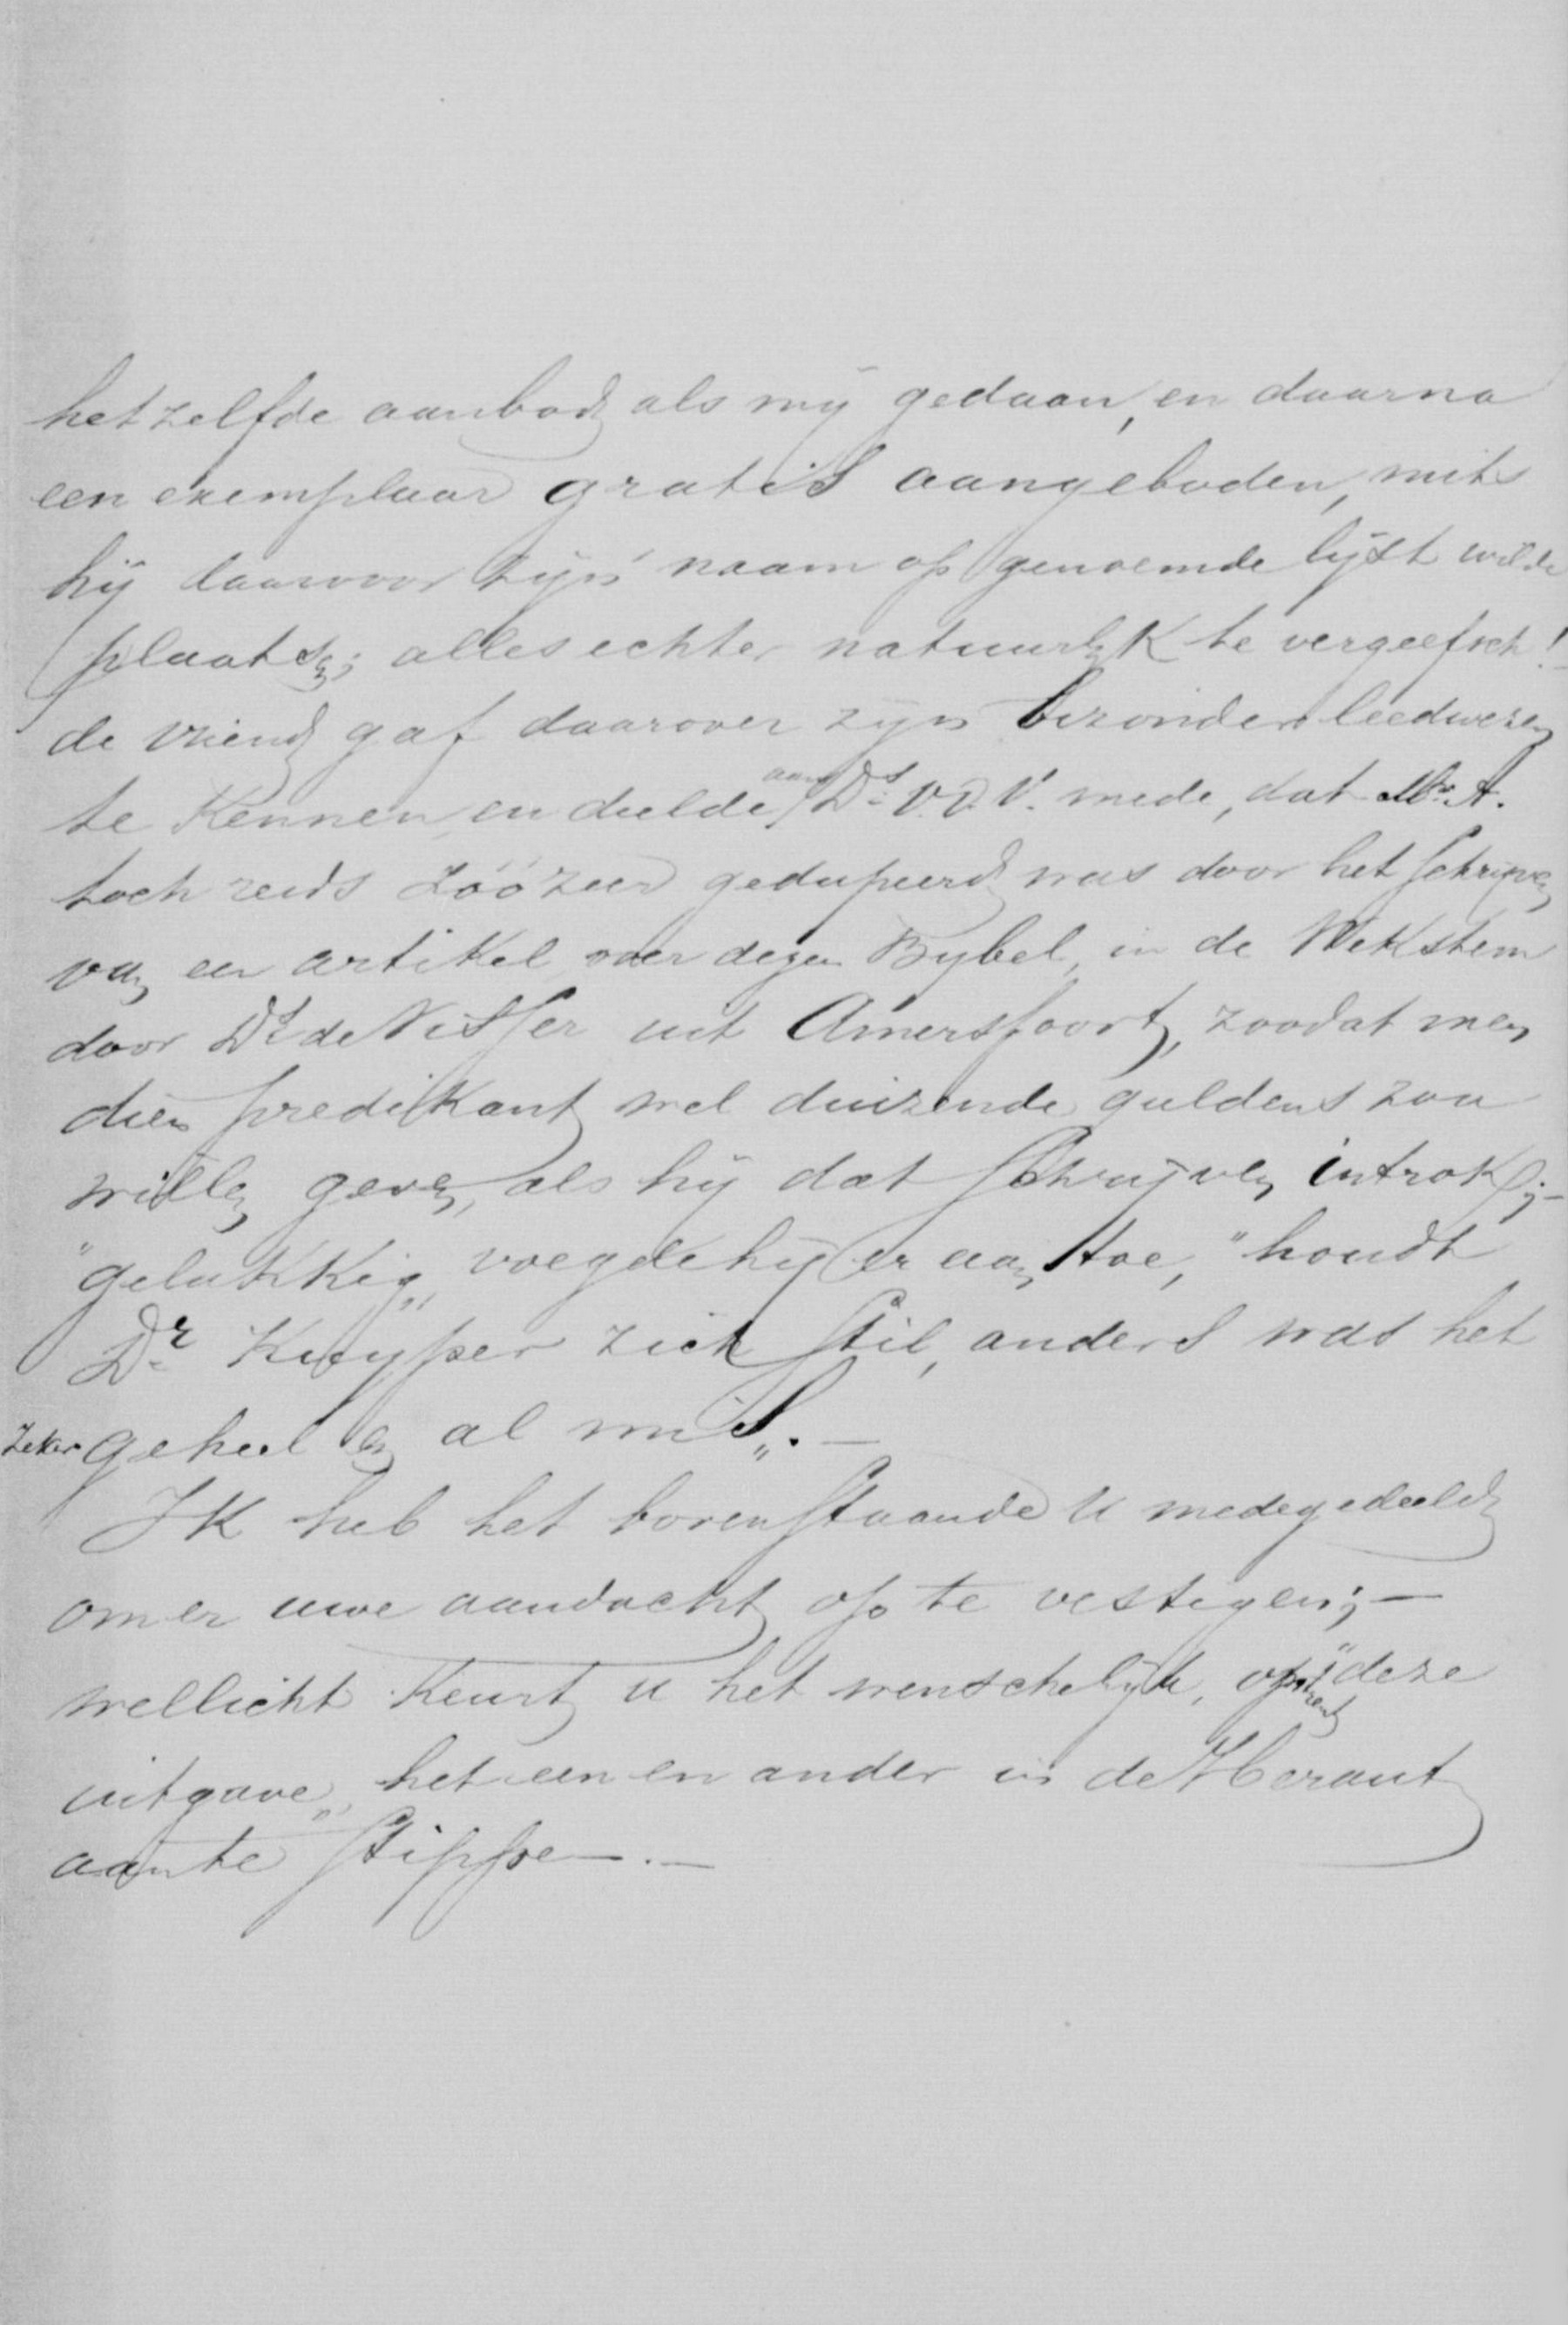 hetzelfde aanbod als mij gedaan, en daarna
een exemplaar gratis aangeboden, mits
hij daarvoor zijn naam op genoemde lijst wilde
plaatsen; alles echter natuurlijk te vergeefsch!
de vriend gaf daarover zijn bizonder leedwezen
te kennen, en deelde aan Ds. V.D.V. mede, dat Mr. A.
toch reeds zóózeer gedupeerd was door het schrijven
van een artikel over dezen Bybel, in de Wekstem
door Ds de Visser uit Amersfoort, zoodat men
dien predikant wel duizende guldens zou
willen geven, als hij dat schrijven introk;—
"gelukkig„ voegde hij er aan toe, "houdt
Dr Kuyper zich stil, anders was het
zeker geheel en al mis„.—
Ik heb het bovenstaande U medegedeeld
om er uwe aandacht op te vestigen;—
wellicht keurt u het wenschelijk, "deze
uitgave„ het een en ander in de Heraut
aan te stippen.—